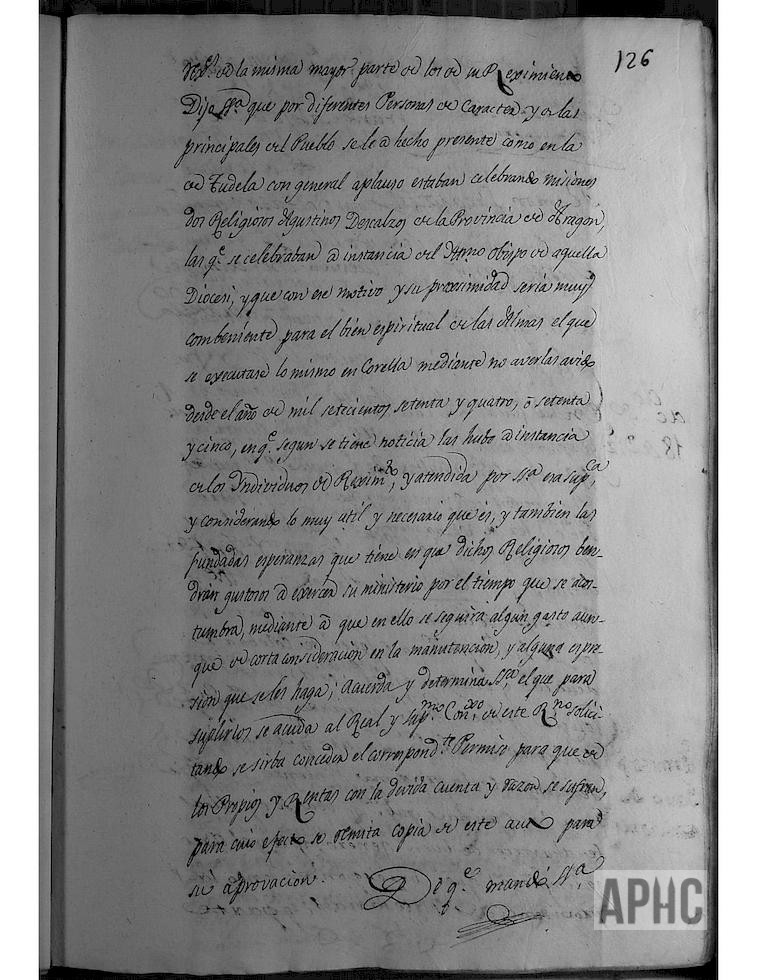 126
de la misma mayor parte de los de su Reximiento
Dijo Sª que por diferentes Personas de Caracter y de las
principales del Pueblo se le à hecho presente como en la
de Tudela con general aplauso estaban celebrando misiones
dos Religiosos Agustinos Descalzos de la Provincia de Aragón,
las qᵉ se celebraban à instancia del Illmo Obispo de aquella
Diocesi, y que con ese motivo y su proximidad seria muy
combeniente para el bien espiritual de las Almas el que
se executase lo mismo en Corella mediante no averlas avido
desde el año de mil setecientos setenta y quatro, ò setenta
y cinco, en qᵉ segun se tiene noticia las hubo à instancia
de los Individuos de Reximᵗᵒ, y atendida por Sª esa supᶜᵃ,
y considerando lo muy util y necesario que es, y tambien las
fundadas esperanzas que tiene en que dichos Religiosos ben-
dràn gustosos à exercer su ministerio por el tiempo que se acos-
tumbra, mediante à que en ello se seguirà algun gasto aun-
que de corta consideracion en la manutencion, y alguna espre-
sion que se les haga; Acuerda y determina Sª el que para
suplirlos se acuda al Real y Supᵐᵒ Conˣᵒ de este Rⁿᵒ solici-
tando se sirba conceder el correspondᵗᵉ Permiso para que de
los Propios y Rentas con la devida cuenta y razon se sufran,
para cuio efecto se remita copia de este auto para
su aprovacion. De qᵉ mandó Sª
APHC